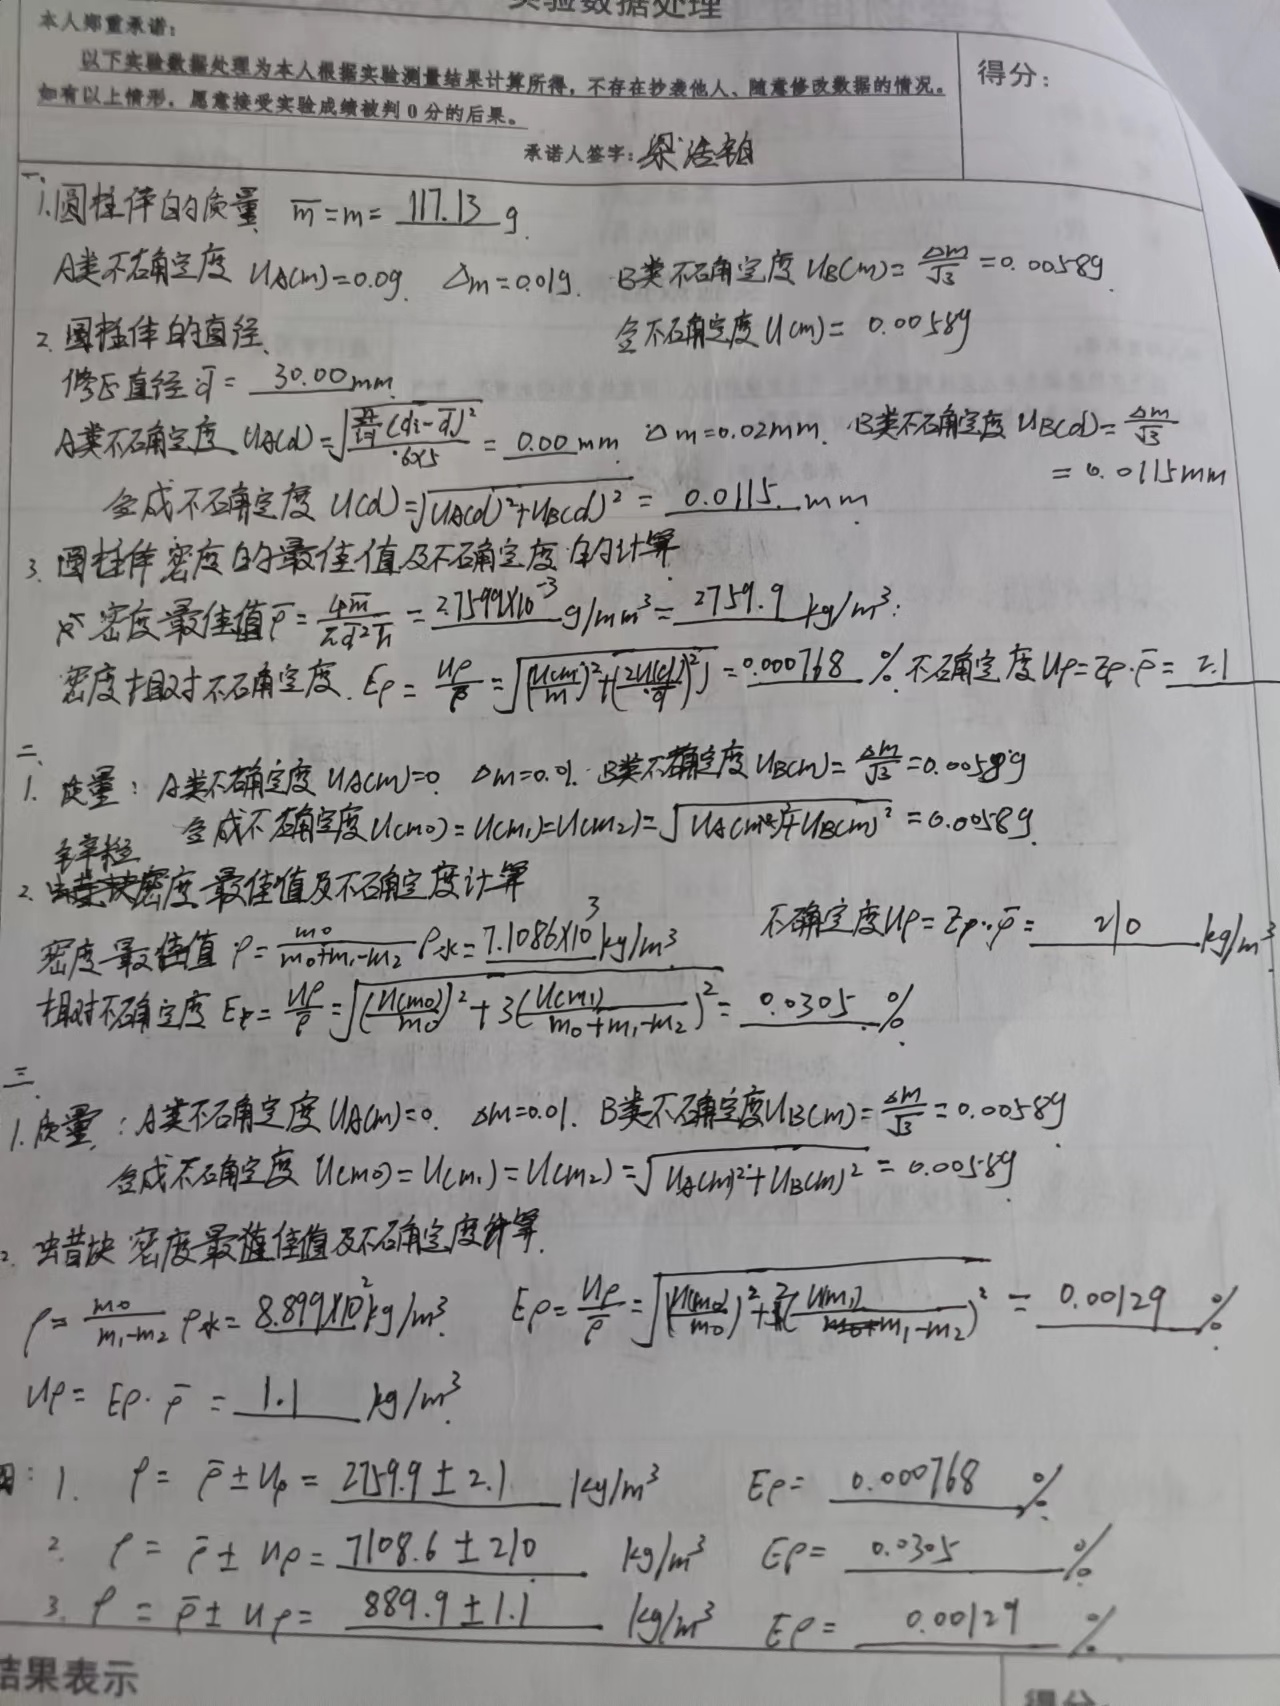 实验数据处理
本人郑重承诺:
以下实验数据处理为本人根据实验测量结果计算所得，不存在抄袭他人、随意修改数据的情况。
如有以上情形，愿意接受实验成绩被判0分的后果。
得分:
承诺人签字: 梁浩铂
一、
1.圆柱体的质量 m̅=m= 117.13 g.
A类不确定度 UA(m)=0.0g. Δm=0.01g. B类不确定度 UB(m)=Δm/√3=0.0058g.
合不确定度 U(m)= 0.0058g
2. 圆柱体的直径.
修正直径 d̅= 30.00mm
A类不确定度 UA(d)=√(Σ(di-d̅)²/6×5)= 0.00 mm. Δm=0.02mm. B类不确定度 UB(d)=Δm/√3
= 0.0115mm
合成不确定度 U(d)=√(UA(d)²+UB(d)²)= 0.0115 mm.
3. 圆柱体密度的最佳值及不确定度的计算
密度最佳值 ρ̅=4m̅/πd̅²h̅= 2.7599×10⁻³ g/mm³= 2759.9 kg/m³.
密度相对不确定度. Eρ=Uρ/ρ̅=√((U(m)/m)²+(2U(d)/d)²)=0.000768 %. 不确定度Uρ=Eρ·ρ̅= 2.1
二、
1. 质量: A类不确定度 UA(m)=0. Δm=0.01. B类不确定度 UB(m)=Δm/√3=0.0058g
合成不确定度U(m0)=U(m1)=U(m2)=√(UA(m)²+UB(m)²)=0.0058g.
2. 锌粒密度最佳值及不确定度计算
密度最佳值 ρ=m0/(m0+m1-m2) ρ水=7.1086×10³kg/m³ 不确定度Uρ=Eρ·ρ̅= 210 kg/m³.
相对不确定度 Eρ=Uρ/ρ=√((U(m0)/m0)²+3(U(m1)/(m0+m1-m2))²)= 0.0305 %.
三、
1.质量: A类不确定度 UA(m)=0. Δm=0.01. B类不确定度UB(m)=Δm/√3=0.0058g.
合成不确定度 U(m0)=U(m1)=U(m2)=√(UA(m)²+UB(m)²)=0.0058g.
2. 蜡块密度最佳值及不确定度计算.
ρ=m0/(m1-m2) ρ水=8.899×10²kg/m³. Eρ=Uρ/ρ=√((U(m0)/m0)²+2(U(m1)/(m1-m2))²)= 0.00129 %.
Uρ= Eρ·ρ̅ = 1.1 kg/m³.
1. ρ= ρ̅±Uρ= 2759.9±2.1 kg/m³ Eρ= 0.000768 %
2. ρ= ρ̅±Uρ= 7108.6±210 kg/m³ Eρ= 0.0305 %
3. ρ= ρ̅±Uρ= 889.9±1.1 kg/m³ Eρ= 0.00129 %
结果表示
得分